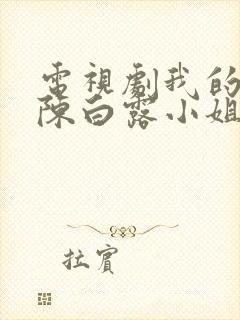 電視劇我的
陳白露小姐
拉賓